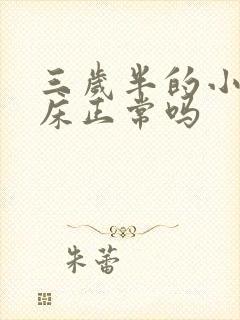 三岁半的小
床正常吗
朱蕾